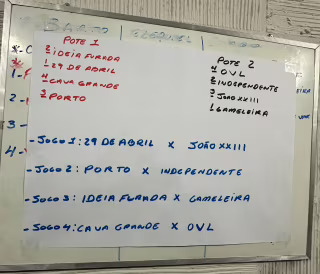 POTE 1
2 IDEIA FURADA
1 29 DE ABRIL
4 CAVA GRANDE
3 PORTO
POTE 2
4 OVL
2 INDEPENDENTE
3 JOÃO XXIII
1 GAMELEIRA
- JOGO 1: 29 DE ABRIL X JOÃO XXIII
- JOGO 2: PORTO X INDEPENDENTE
- JOGO 3: IDEIA FURADA X GAMELEIRA
- JOGO 4: CAVA GRANDE X OVL
1 -
2 -
3 -
4 -